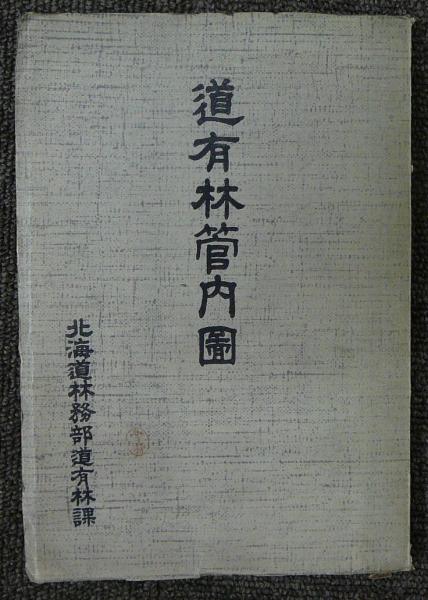 道有林管内圖
北海道林務部道有林課